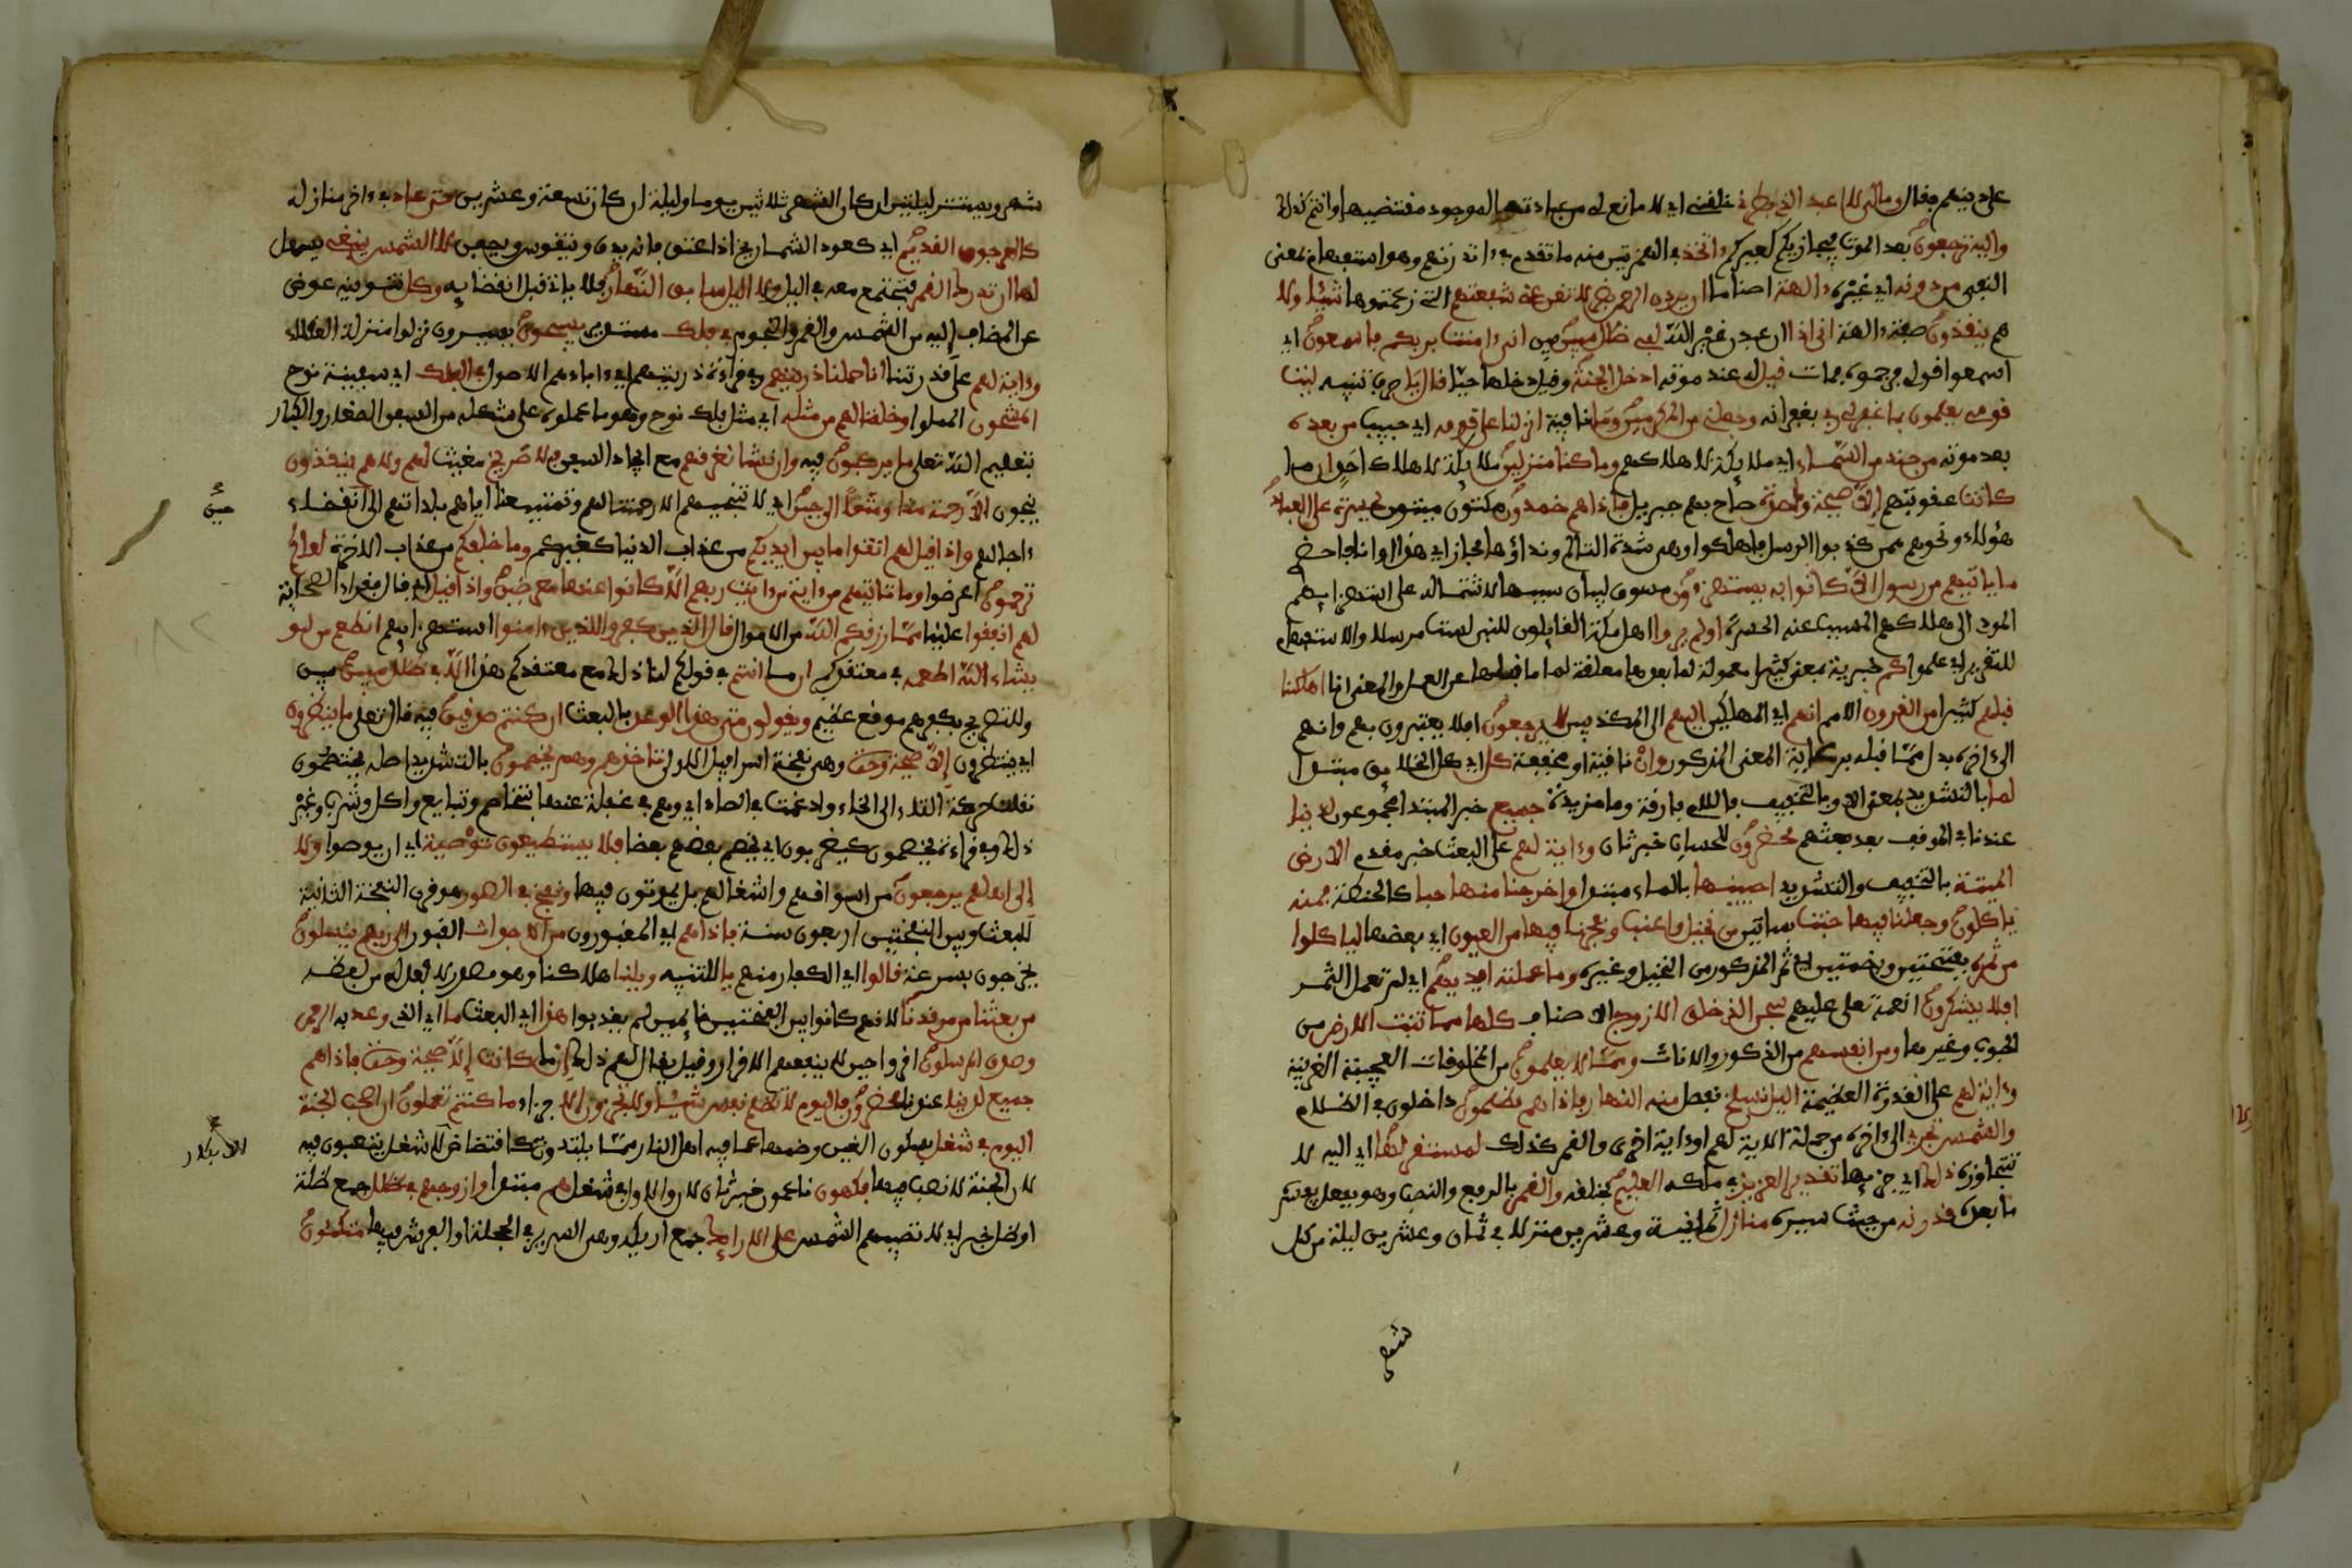 على دينهم فقال ومالي لا اعبد الذي فطرني خلقني اي لا مانع لي من عبادته الموجود مقتضيها وانتم كذلك
واليه ترجعون بعد الموت فيجازيكم كغيركم ءاتخذ في الهمزتين منه ما تقدم في ءانذرتهم وهو استفهام بمعنى
النفي من دونه اي غيره ءالهة اصناما ان يردن الرحمن بضر لا تغن عني شفعتهم التي زعمتموها شيئا ولا
هم ينقذون صفة ءالهة اني اذا ان عبدت غير الله لفي ظلل مبين بين اني ءامنت بربكم فاسمعون اي
اسمعوا قولي فرجموه فمات قيل له عند موته ادخل الجنة وقيل دخلها حيا قال يا حرف تنبيه ليت
قومي يعلمون بما غفر لي ربي بغفرانه وجعلني من المكرمين وما نافية انزلنا على قومه اي حبيب من بعده
بعد موته من جند من السماء اي ملايكة لاهلاكهم وما كنا منزلين ملايكة لاهلاك احد ان ما
كانت عقوبتهم الا صيحة واحدة صاح بهم جبريل فاذا هم خمدون ساكتون ميتون يحسرة على العباد
هؤلاء ونحوهم ممن كذبوا الرسل فاهلكوا وهي شدة التالم ونداؤها مجاز اي هذا اوانك فاحضري
ما ياتيهم من رسول الا كانوا به يستهزءون مسوق لبيان سببها لاشتماله على استهزايهم
المودي الى هلاكهم المسبب عنه الحسرة اولم يروا اهل مكة القايلون للنبي لست مرسلا والاستفهام
للتقرير اي علموا كم خبرية بمعنى كثيرا معمولة لما بعدها معلقة لما ما قبلها عن العمل والمعنى انا اهلكنا
قبلهم كثيرا من القرون الامم انهم اي المهلكين اليهم الى المكذبين لا يرجعون افلا يعتبرون بهم وانهم
الى ءاخره بدل مما قبله برعاية المعنى المذكور وان نافية او مخففة كل اي كل الخلايق مبتدا
لما بالتشديد بمعنى الا وبالتخفيف فاللام فارقة وما مزيدة جميع خبر المبتدا مجموعون لدينا
عندنا في الموقف بعد بعثهم محضرون للحساب خبر ثان وءاية لهم على البعث خبر مقدم الارض
الميتة بالتخفيف والتشديد احيينها بالماء مبتدا واخرجنا منها حبا كالحنطة فمنه
ياكلون وجعلنا فيها جنت بساتين من نخيل واعنب وفجرنا فيها من العيون اي بعضها لياكلوا
من ثمره بفتحتين وبضمتين اي ثمر المذكور من النخيل وغيره وما عملته ايديهم اي لم تعمل الثمر
افلا يشكرون انعمه تعلى عليهم سبحن الذي خلق الازوج الاصناف كلها مما تنبت الارض من
الحبوب وغيرها ومن انفسهم من الذكور والاناث ومما لا يعلمون من المخلوقات العجيبة الغريبة
وءاية لهم على القدرة العظيمة اليل نسلخ نفصل منه النهار فاذا هم مظلمون داخلون في الظلام
والشمس تجري الى ءاخره من جملة الاية لهم او ءاية اخرى والقمر كذلك لمستقر لها اي اليه لا
تتجاوزه ذلك اي جريها تقدير العزيز في ملكه العليم بخلقه والقمر بالرفع والنصب وهو بفعل يفسره
ما بعده قدرنه من حيث سيره منازل ثمانية وعشرين منزلا في ثمان وعشرين ليلة من كل
شهر
شهر ويستتر ليلتين ان كان الشهر ثلاثين يوما وليلة ان كان تسعة وعشرين حتى عاد في ءاخر منازله
كالعرجون القديم اي كعود الشماريخ اذا عتق فانه يدق ويتقوس ويصفر لا الشمس ينبغي يسهل
لها ان تدرك القمر فتجتمع معه في اليل ولا اليل سابق النهار فلا ياتي قبل انقضايه وكل تنوينه عوض
عن المضاف اليه من الشمس والقمر والنجوم في فلك مستدير يسبحون يسيرون نزلوا منزلة العقلاء
وءاية لهم على قدرتنا انا حملنا ذريتهم وفي قراءة ذريتهم اي ءاباءهم الاصول في الفلك اي سفينة نوح
المشحون المملو وخلقنا لهم من مثله اي مثل فلك نوح وهو ما عملوه على شكله من السفن الصغار والكبار
بتعليم الله تعلى ما يركبون فيه وان نشا نغرقهم مع ايجاد السفن فلا صريخ مغيث لهم ولا هم ينقذون
ينجون الا رحمة منا ومتعا الى حين اي لا تنجيهم الا رحمتنا لهم وتمتيعنا اياهم بلذاتهم الى انقضاء
حين
ءاجالهم واذا قيل لهم اتقوا ما بين ايديكم من عذاب الدنيا كغيركم وما خلفكم من عذاب الاخرة لعلكم
ترحمون اعرضوا وما تاتيهم من ءاية من ءايت ربهم الا كانوا عنها معرضين واذا قيل اي قال فقراء الصحابة
لهم انفقوا علينا مما رزقكم الله من الاموال قال الذين كفروا للذين ءامنوا استهزاء بهم انطعم من لو
يشاء الله اطعمه في معتقدكم ان ما انتم في قولكم لنا ذلك مع معتقدكم هذا الا في ظلل مبين بين
وللتصريح بكفرهم موقع عظيم ويقولون متى هذا الوعد بالبعث ان كنتم صدقين فيه قال تعلى ما ينظرون
اي ينتظرون الا صيحة وحدة وهي نفخة اسرافيل الاولى تاخذهم وهم يخصمون بالتشديد اصله يختصمون
نقلت حركة التاء الى الخاء وادغمت في الصاد اي وهم في غفلة عنها بتخاصم وتبايع واكل وشرب وغير
ذلك وفي قراءة يخصمون كيضربون اي يخصم بعضهم بعضا فلا يستطيعون توصية اي ان يوصوا ولا
الى اهلهم يرجعون من اسواقهم واشغالهم بل يموتون فيها ونفخ في الصور هو قرن النفخة الثانية
للبعث وبين النفختين اربعون سنة فاذا هم اي المقبورون من الاجداث القبور الى ربهم ينسلون
يخرجون بسرعة قالوا اي الكفار منهم يا للتنبيه ويلنا هلاكنا وهو مصدر لا فعل له من لفظه
من بعثنا من مرقدنا لانهم كانوا بين النفختين نايمين لم يعذبوا هذا اي البعث ما اي الذي وعد به الرحمن
وصدق المرسلون اقروا حين لا ينفعهم الاقرار وقيل يقال لهم ذلك ان ما كانت الا صيحة وحدة فاذا هم
جميع لدينا عندنا محضرون فاليوم لا تظلم نفس شيئا ولا تجزون الا جزاء ما كنتم تعملون ان اصحب الجنة
اليوم في شغل بسكون الغين وضمها عما فيه اهل النار مما يلتذون به كافتضاض لا شغل يتعبون فيه
الابكار
لان الجنة لا نصب فيها فكهون ناعمون خبر ثان لان والاول في شغل هم مبتدا وازوجهم في ظلل جمع ظلة
او ظل خبر اي لا تصيبهم الشمس على الارايك جمع اريكة وهي السرير في الحجلة او الفرش فيها متكئون